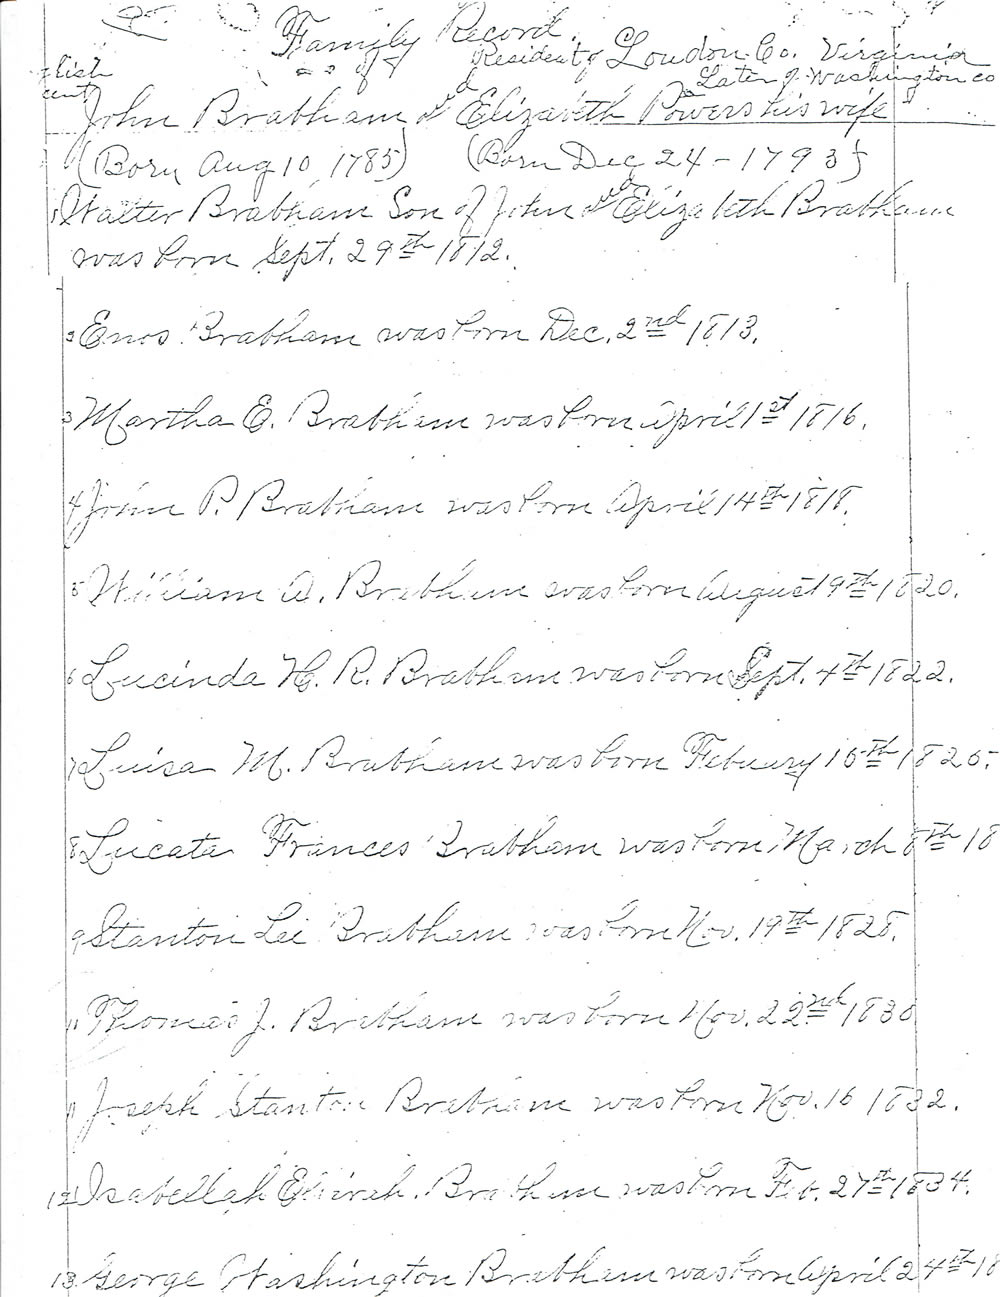 Family Record
of
Resident of Loudon Co. Virginia
Later of Washington co
lish
cent
John Brabham and Elizabeth Powers his wife
(Born Aug 10, 1785) (Born Dec 24 - 1793)
1 Walter Brabham Son of John and Elizabeth Brabham
was born Sept. 29th 1812.
2 Enos Brabham was born Dec. 2nd 1813.
3 Martha E. Brabham was born April 1st 1816.
4 John P. Brabham was born April 14th 1818.
5 William A. Brabham was born August 19th 1820.
6 Lucinda H. R. Brabham was born Sept. 4th 1822.
7 Luisa M. Brabham was born Febuary 15th 1825.
8 Lucata Frances Brabham was born March 8th 18
9 Stanton Lee Brabham was born Nov. 19th 1828.
11 Thomas J. Brabham was born Nov. 22nd 1830
11 Joseph Stanton Brabham was born Nov. 16 1832.
12 Isabellah Brabham was born Feb. 27th 1834.
13 George Washington Brabham was born April 24th 18